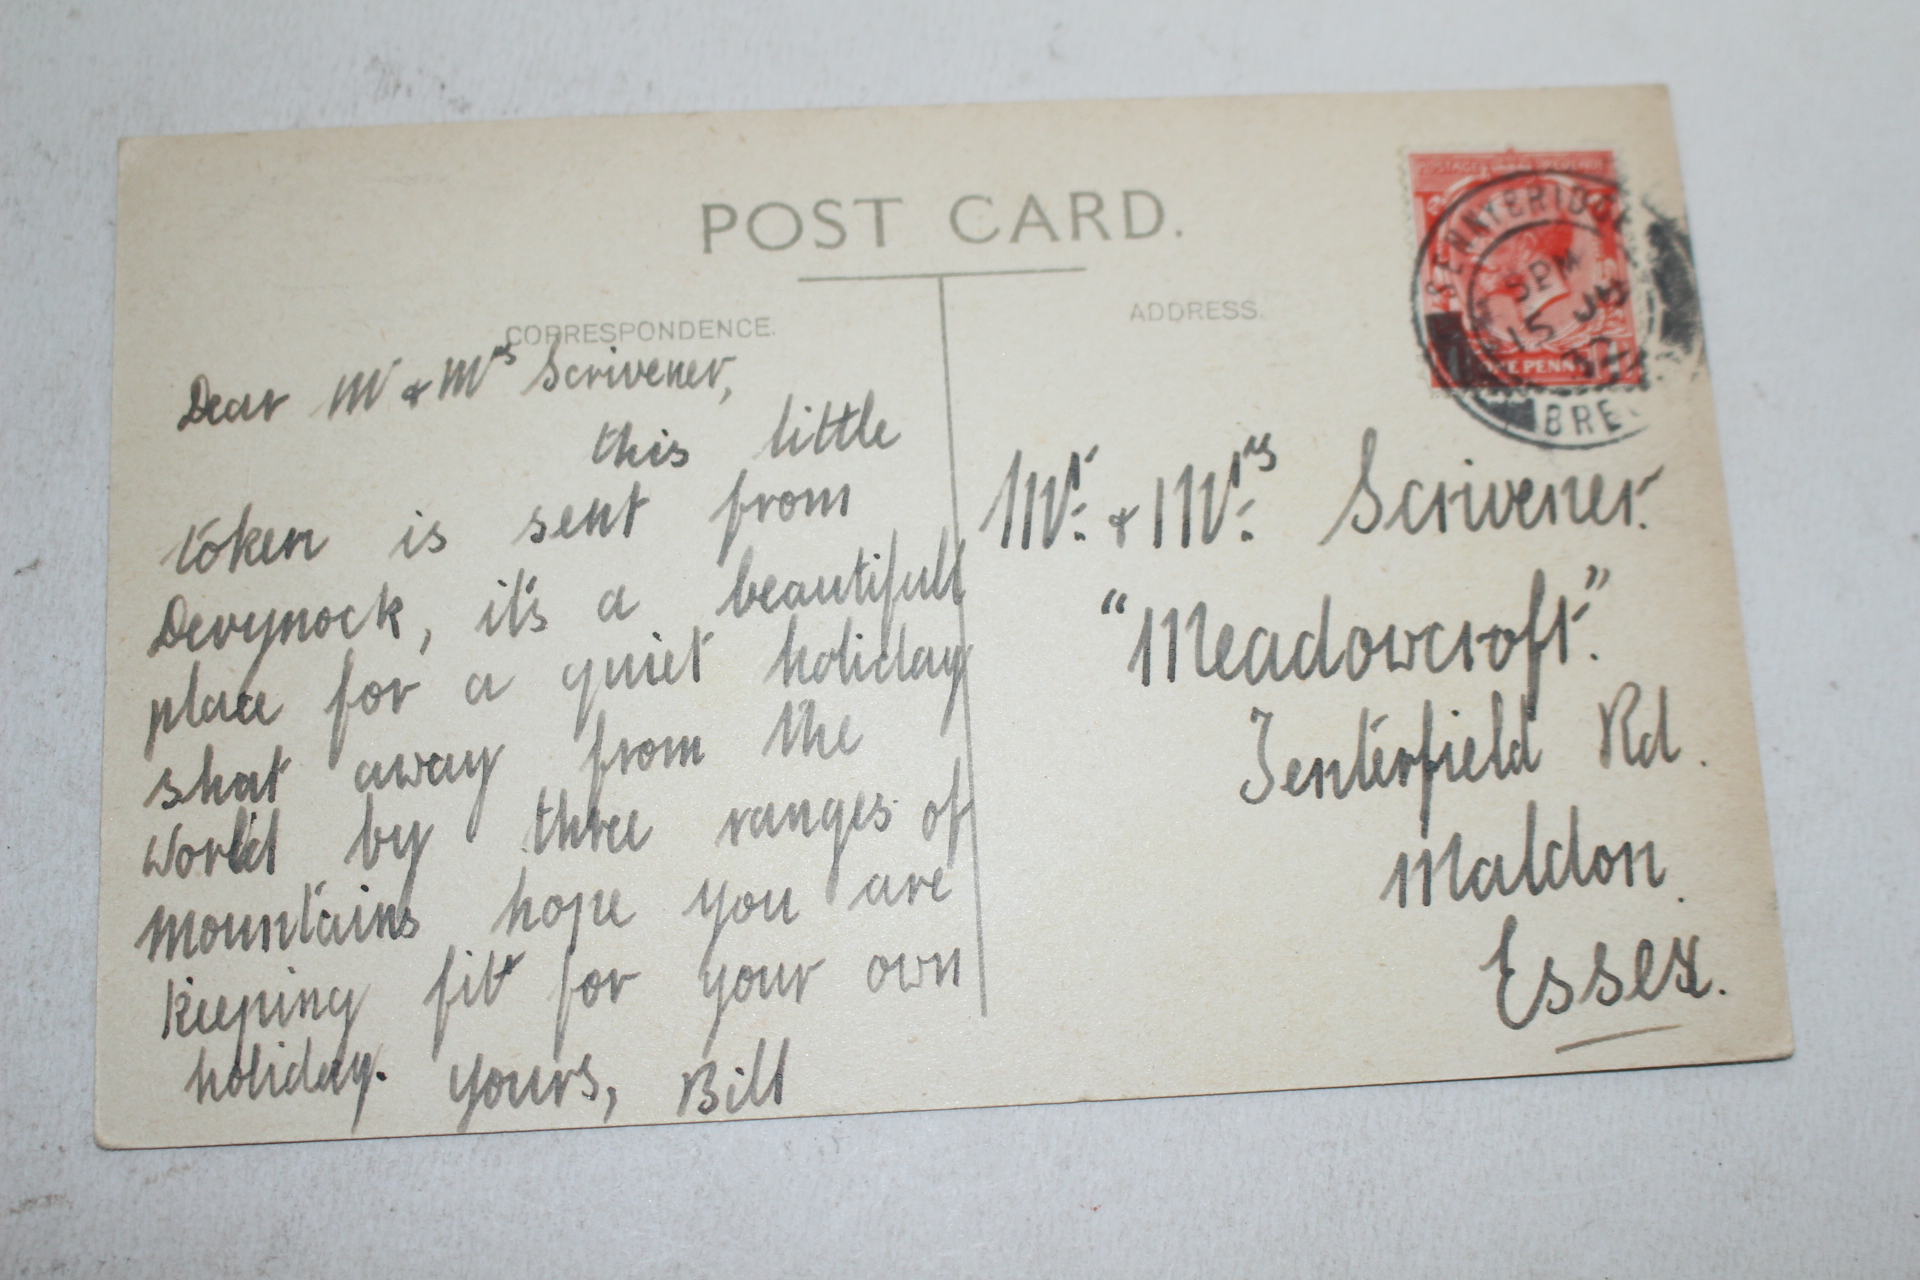 POST CARD.
CORRESPONDENCE.
ADDRESS.
Dear Mr & Mrs Scrivener,
this little
token is sent from
Devynock, it's a beautifull
place for a quiet holiday
shut away from the
world by three ranges of
mountains hope you are
keeping fit for your own
holiday. Yours, Bill
Mr. & Mrs. Scrivener.
"Meadowcroft".
Tenterfield Rd.
Maldon.
Essex.
SENNYBRIDGE
5 PM
15 JY
BRE
ONE PENNY